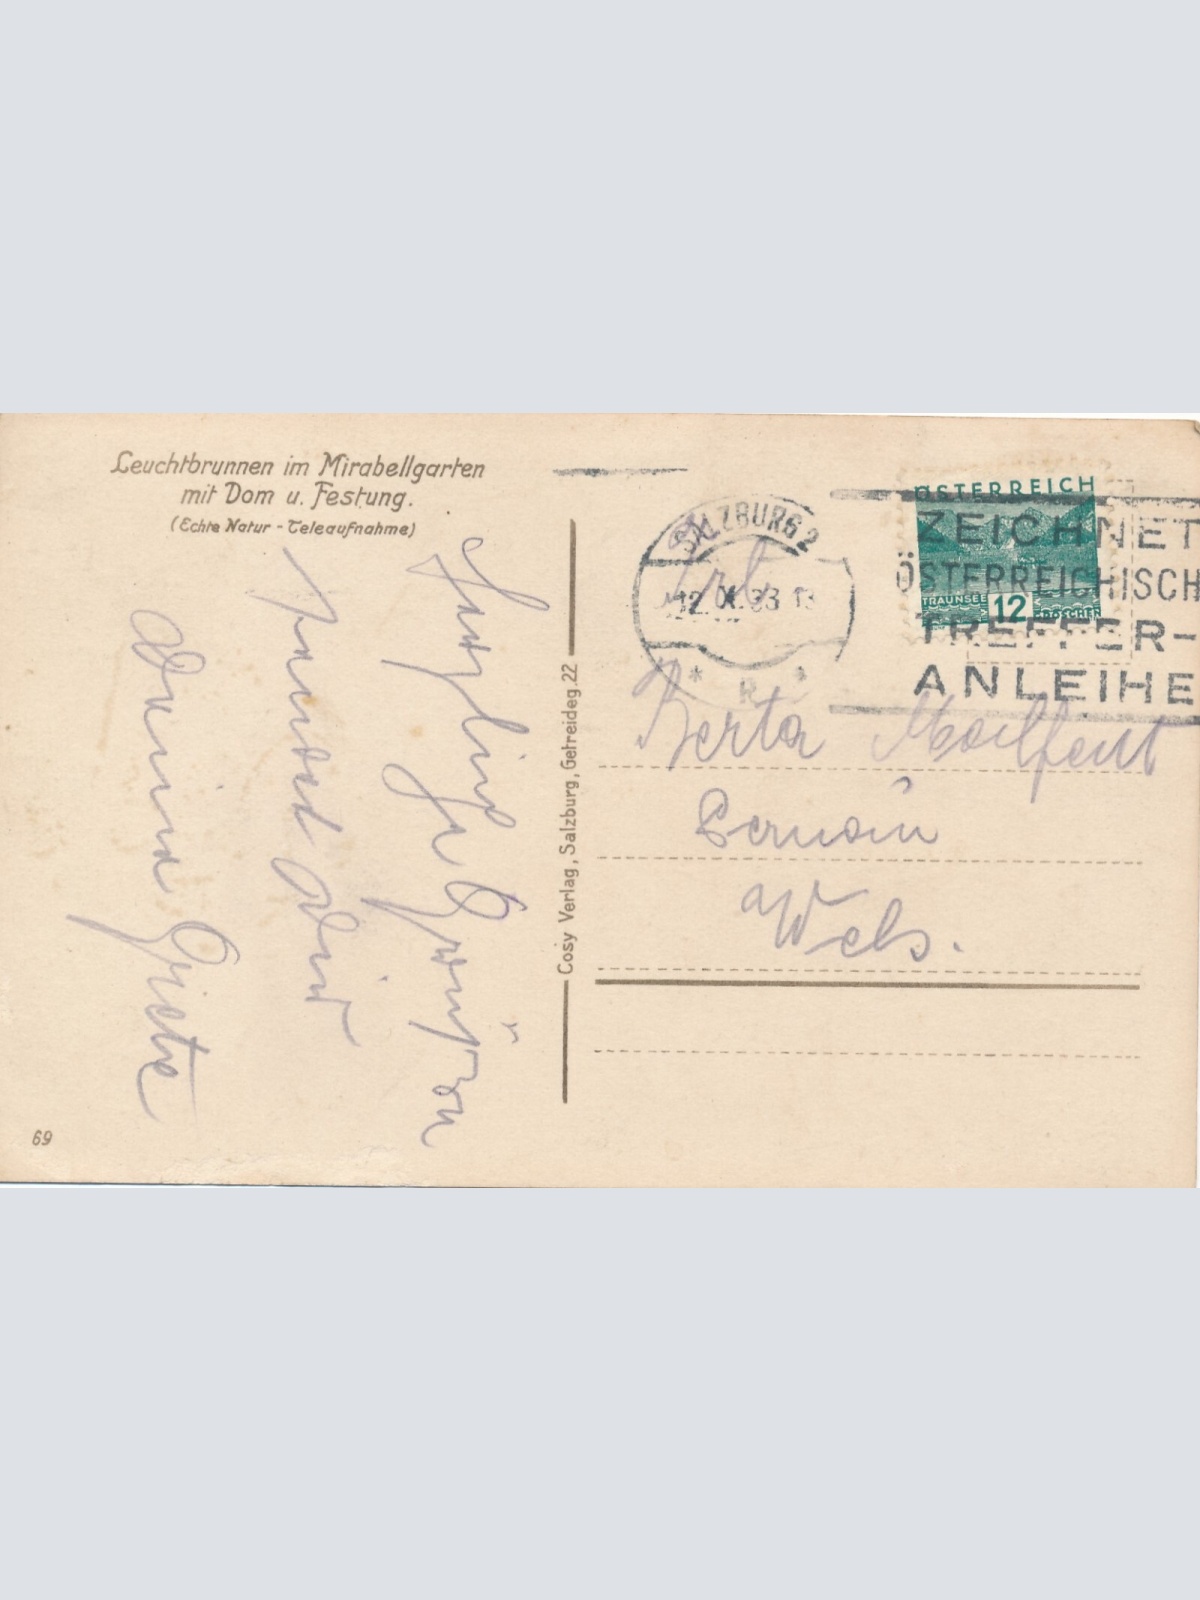 Leuchtbrunnen im Mirabellgarten
mit Dom u. Festung.
(Echte Natur - Teleaufnahme)
Herzliche Grüße
sendet Dir
Deine Grete
69
Cosy Verlag, Salzburg, Getreideg. 22
SALZBURG 2
12. IX. 33 13
* R *
ÖSTERREICH
TRAUNSEE 12 GROSCHEN
ZEICHNET
ÖSTERREICHISCH
TREFFER-
ANLEIHE
Frl.
Berta
Pernau
Wels.